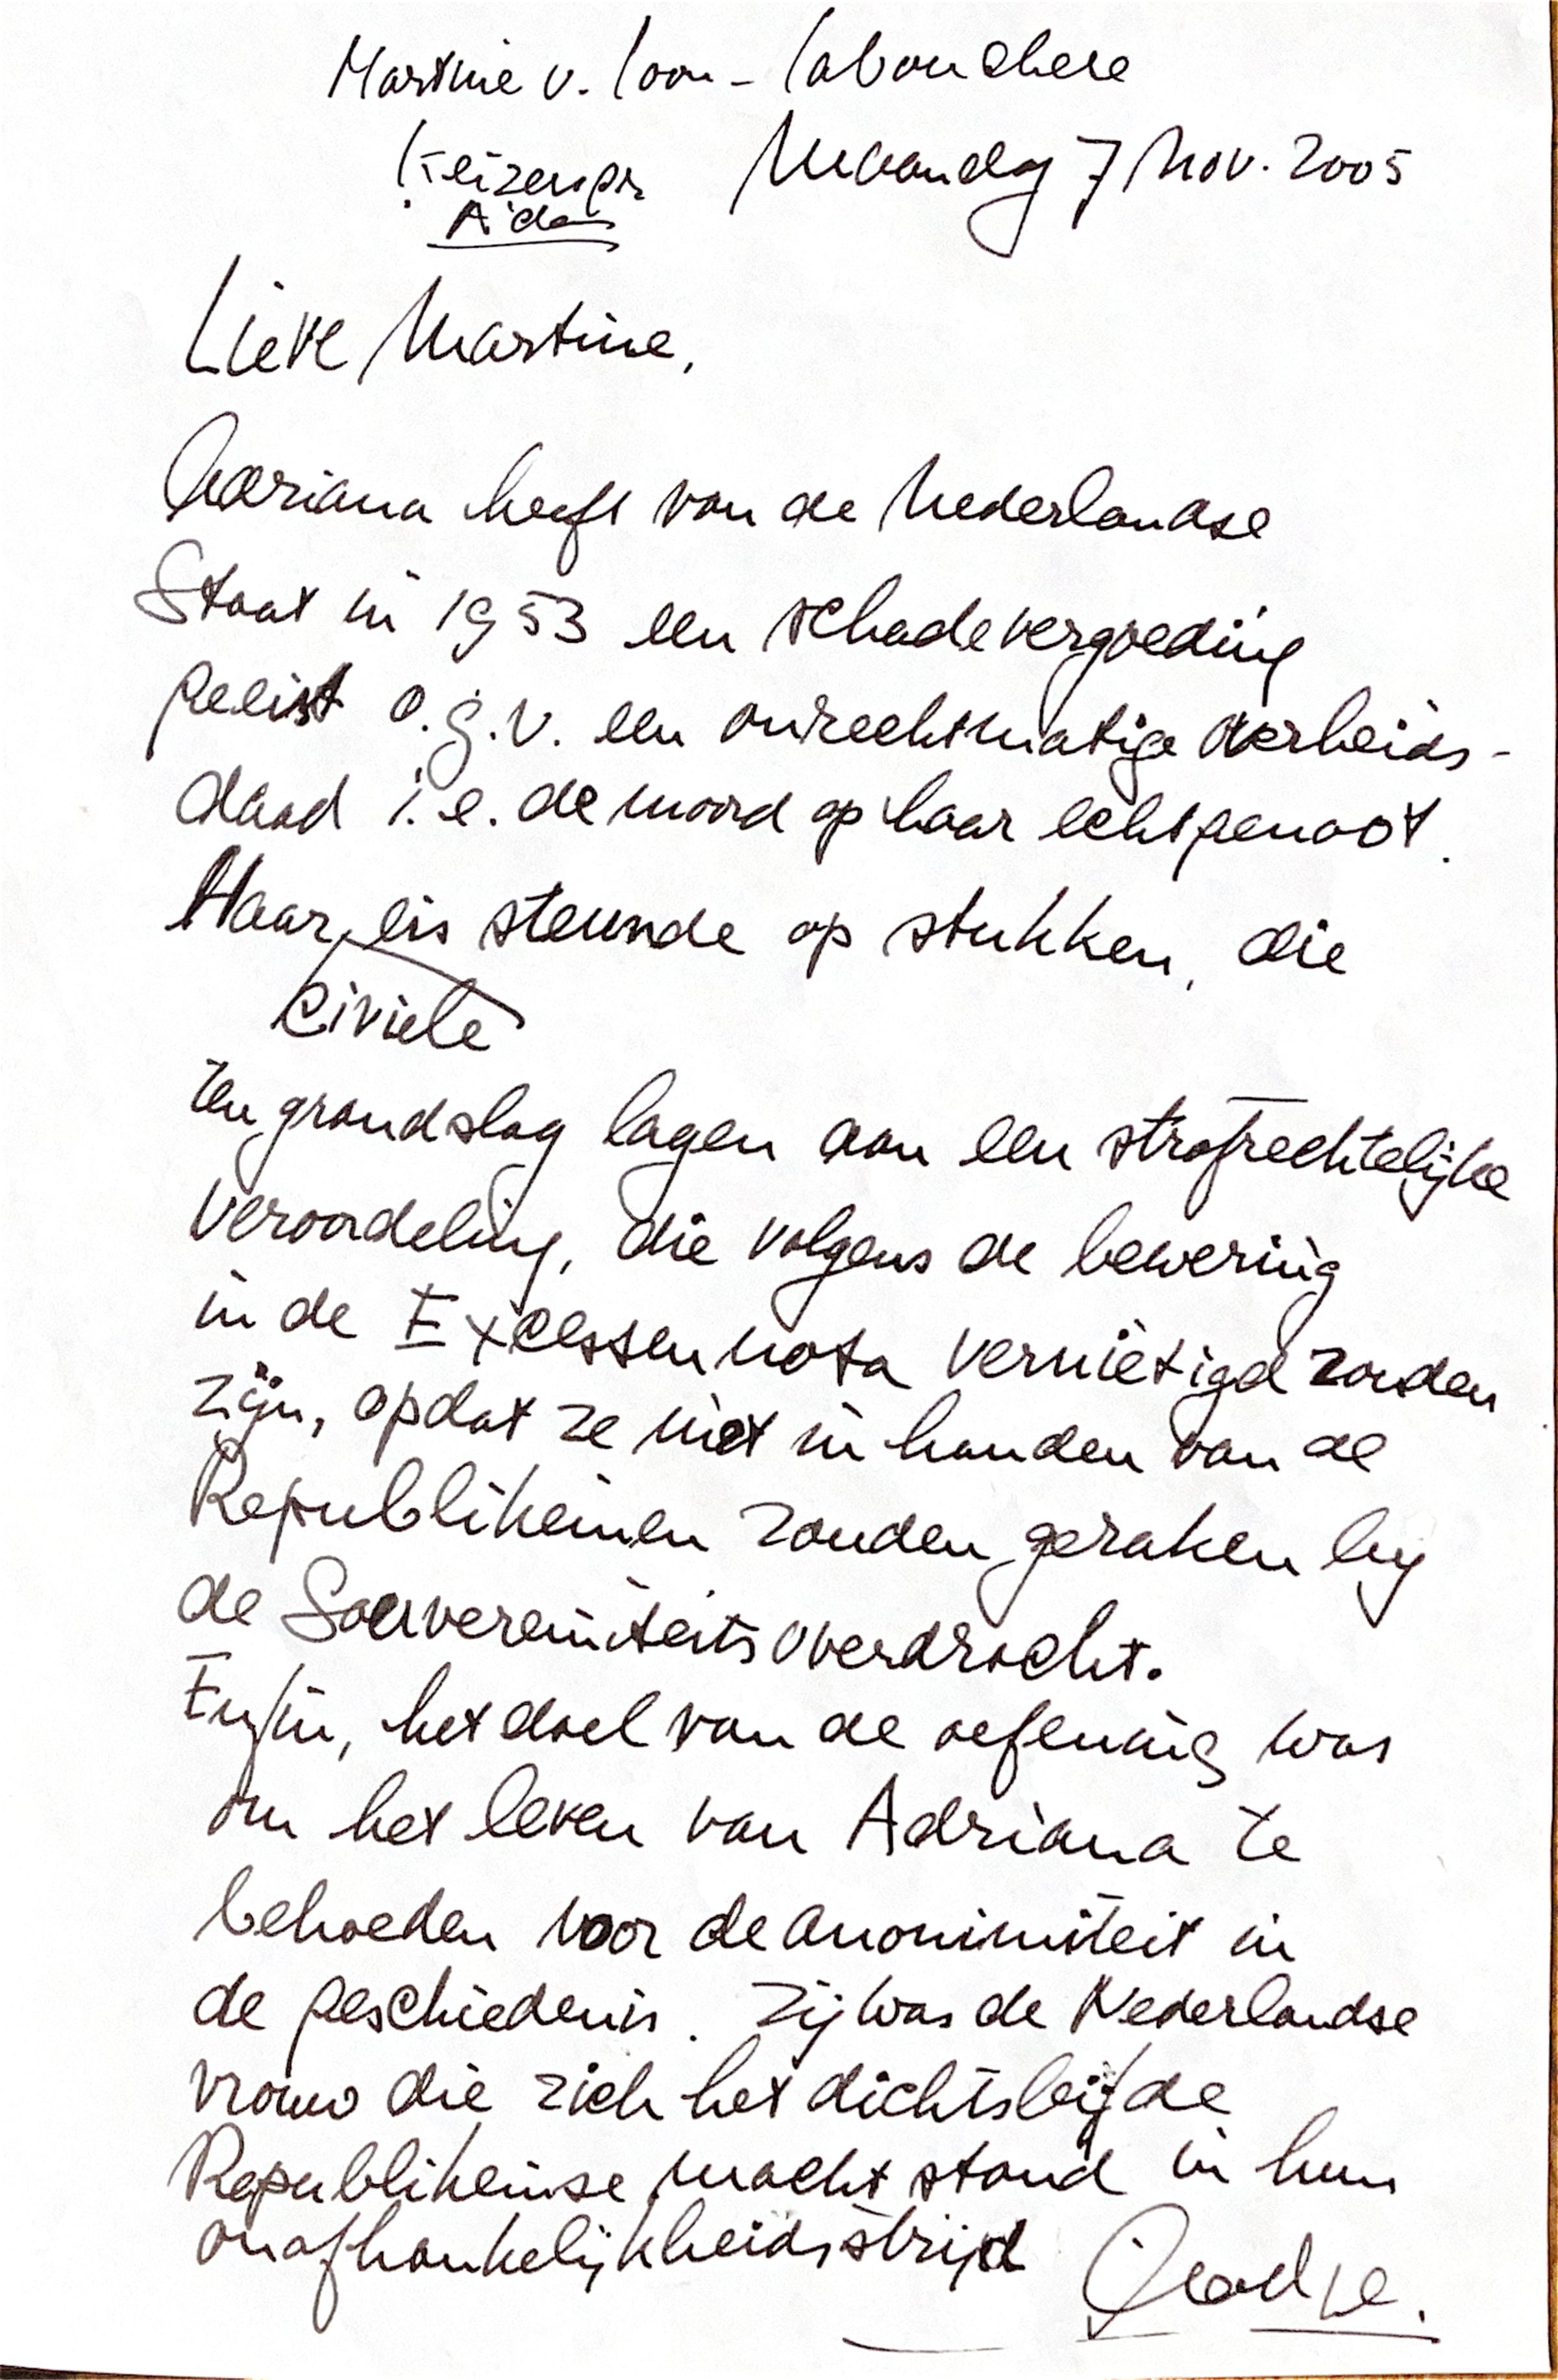 Martine v. Loon - Labouchere
Keizersgr Maandag 7 Nov. 2005
A'dam
Lieve Martine,
Adriana heeft van de Nederlandse
Staat in 1953 een schadevergoeding
geeist o.g.v. een onrechtmatige overheids-
daad i.e. de moord op haar echtgenoot.
Haar eis steunde op stukken, die
civiele
ten grondslag lagen aan een strafrechtelijke
veroordeling, die volgens de bewering
in de Excessennota vernietigd zouden
zijn, opdat ze niet in handen van de
Republikeinen zouden geraken bij
de Souvereiniteitsoverdracht.
Enfin, het doel van de oefening was
om het leven van Adriana te
behoeden voor de anonimiteit in
de geschiedenis. Zij was de Nederlandse
vrouw die zich het dichtst bij de
Republikeinse macht stond in hun
onafhankelijkheidsstrijd